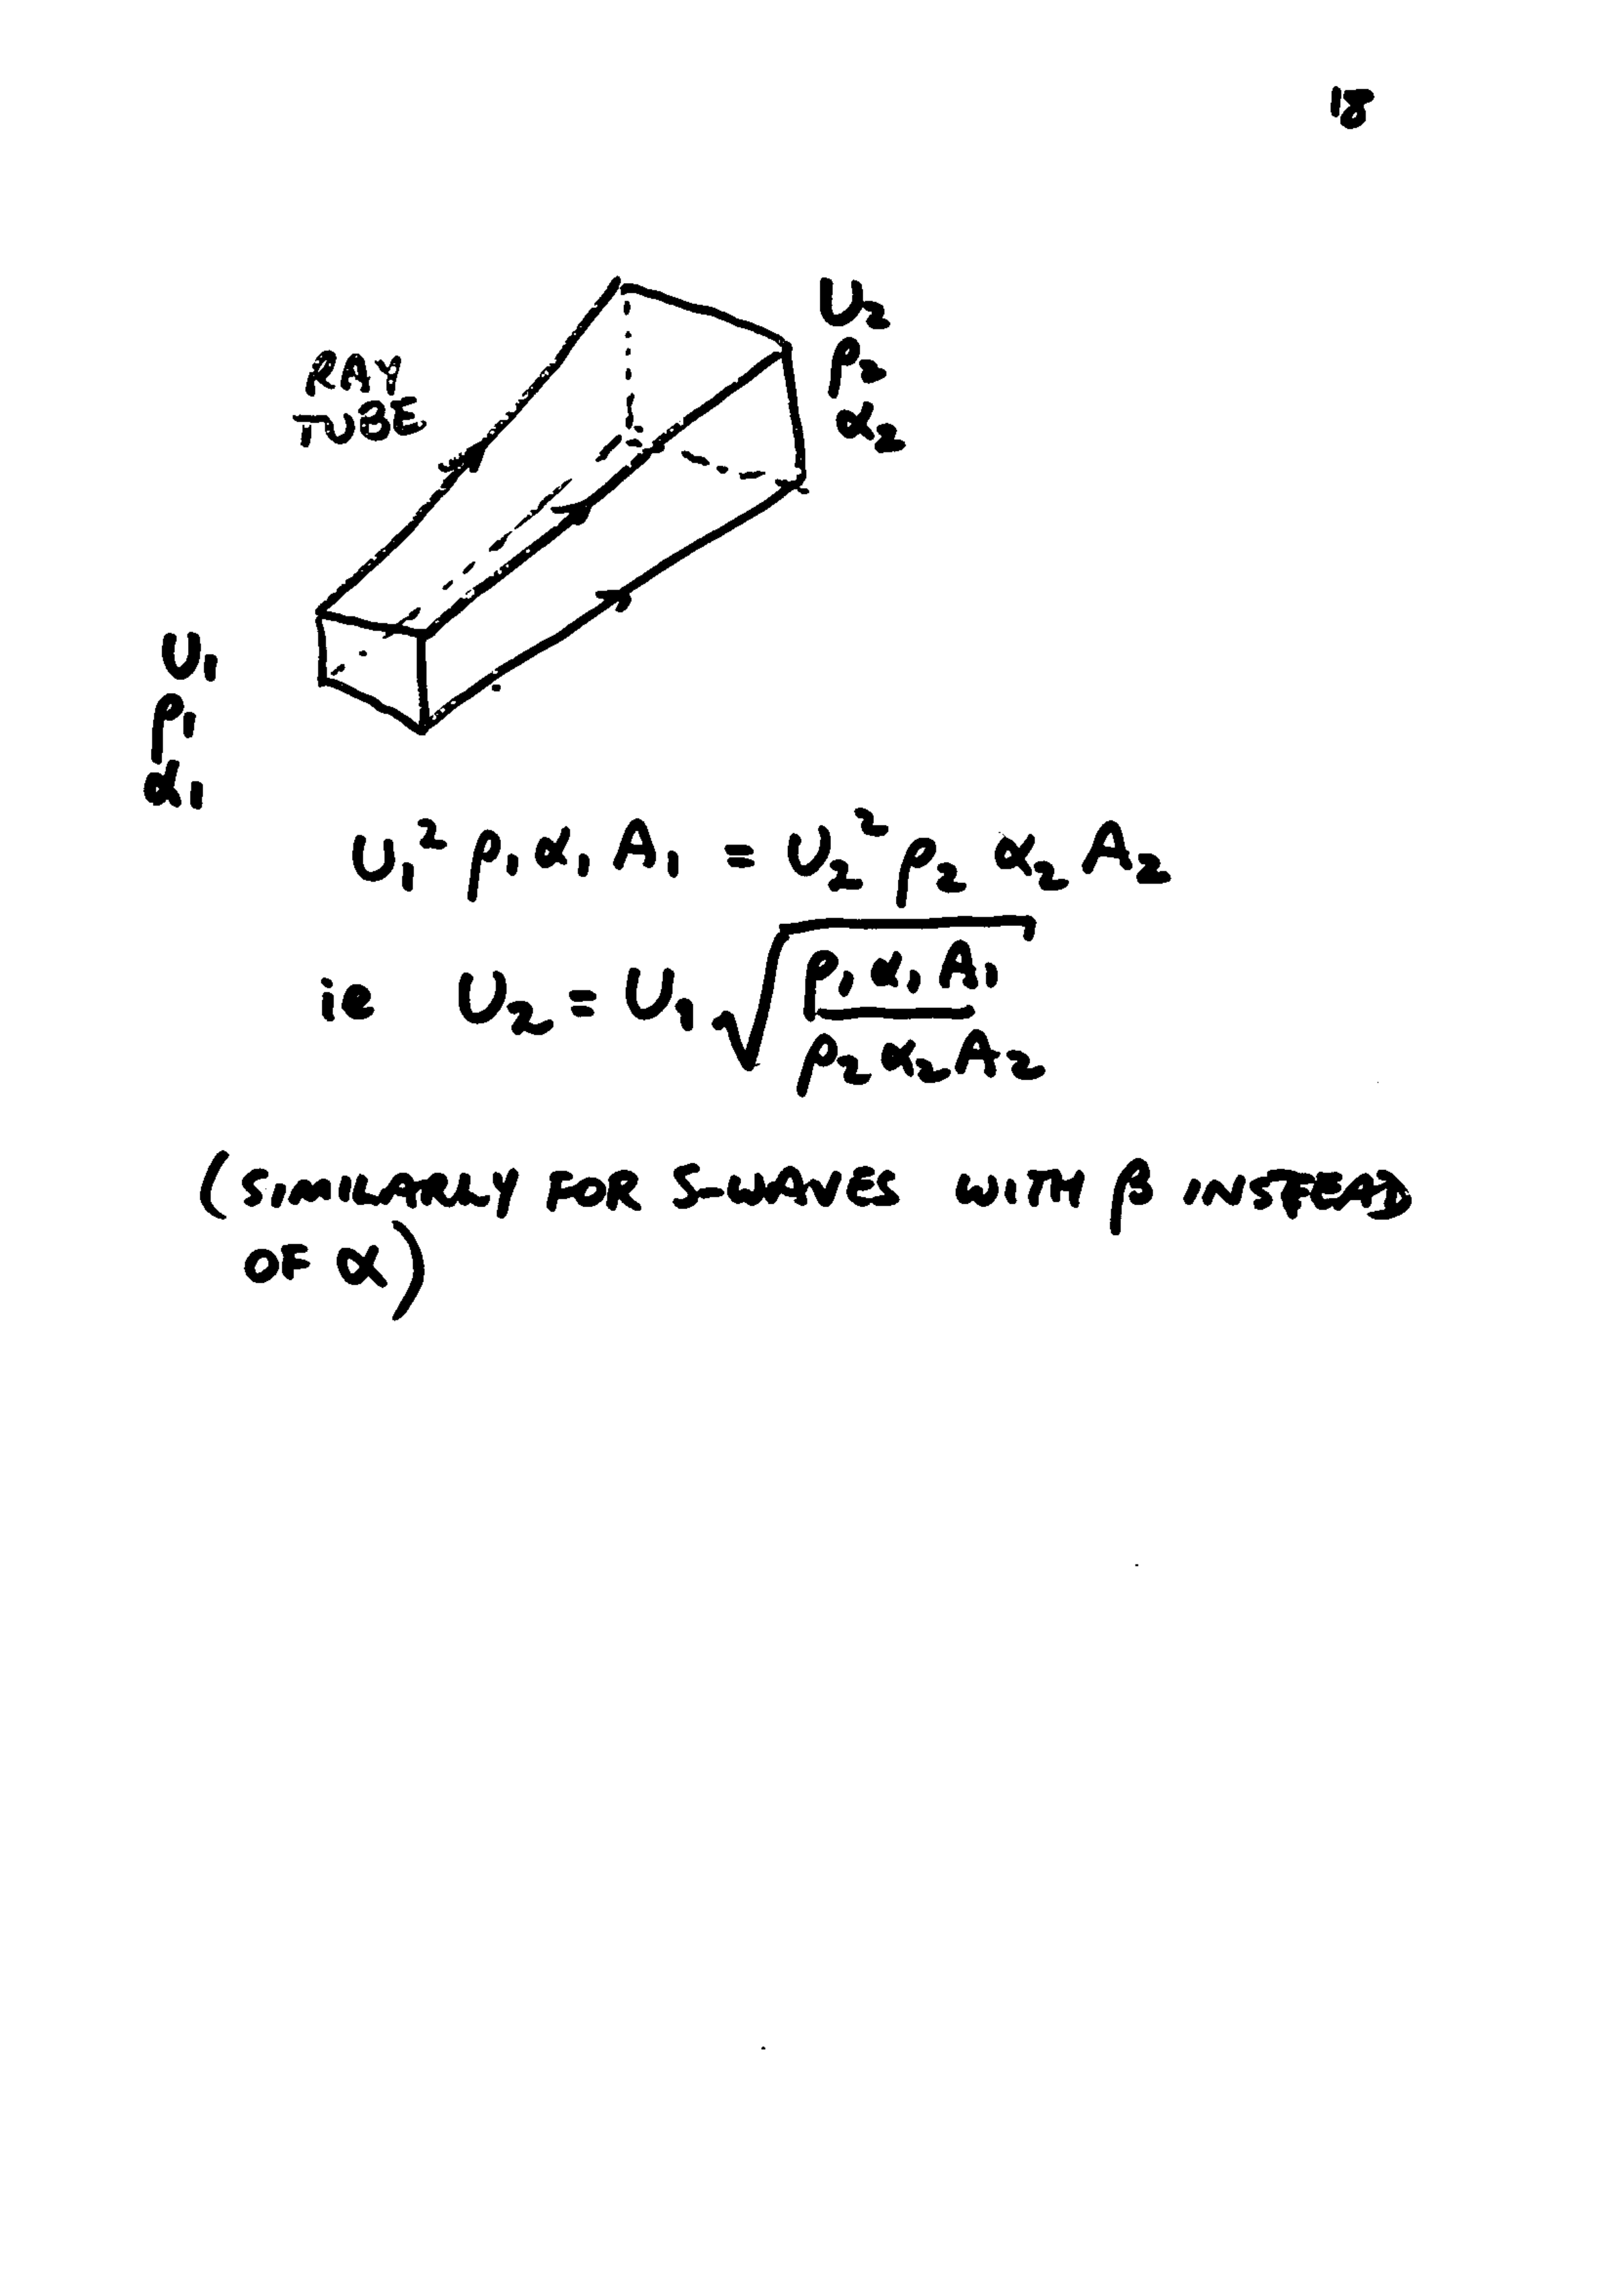 18
RAY
TUBE
U₂
ρ₂
α₂
U₁
ρ₁
α₁
U₁² ρ₁ α₁ A₁ = U₂² ρ₂ α₂ A₂
ie U₂ = U₁ √(ρ₁ α₁ A₁ / ρ₂ α₂ A₂)
(SIMILARLY FOR S-WAVES WITH β INSTEAD
OF α)